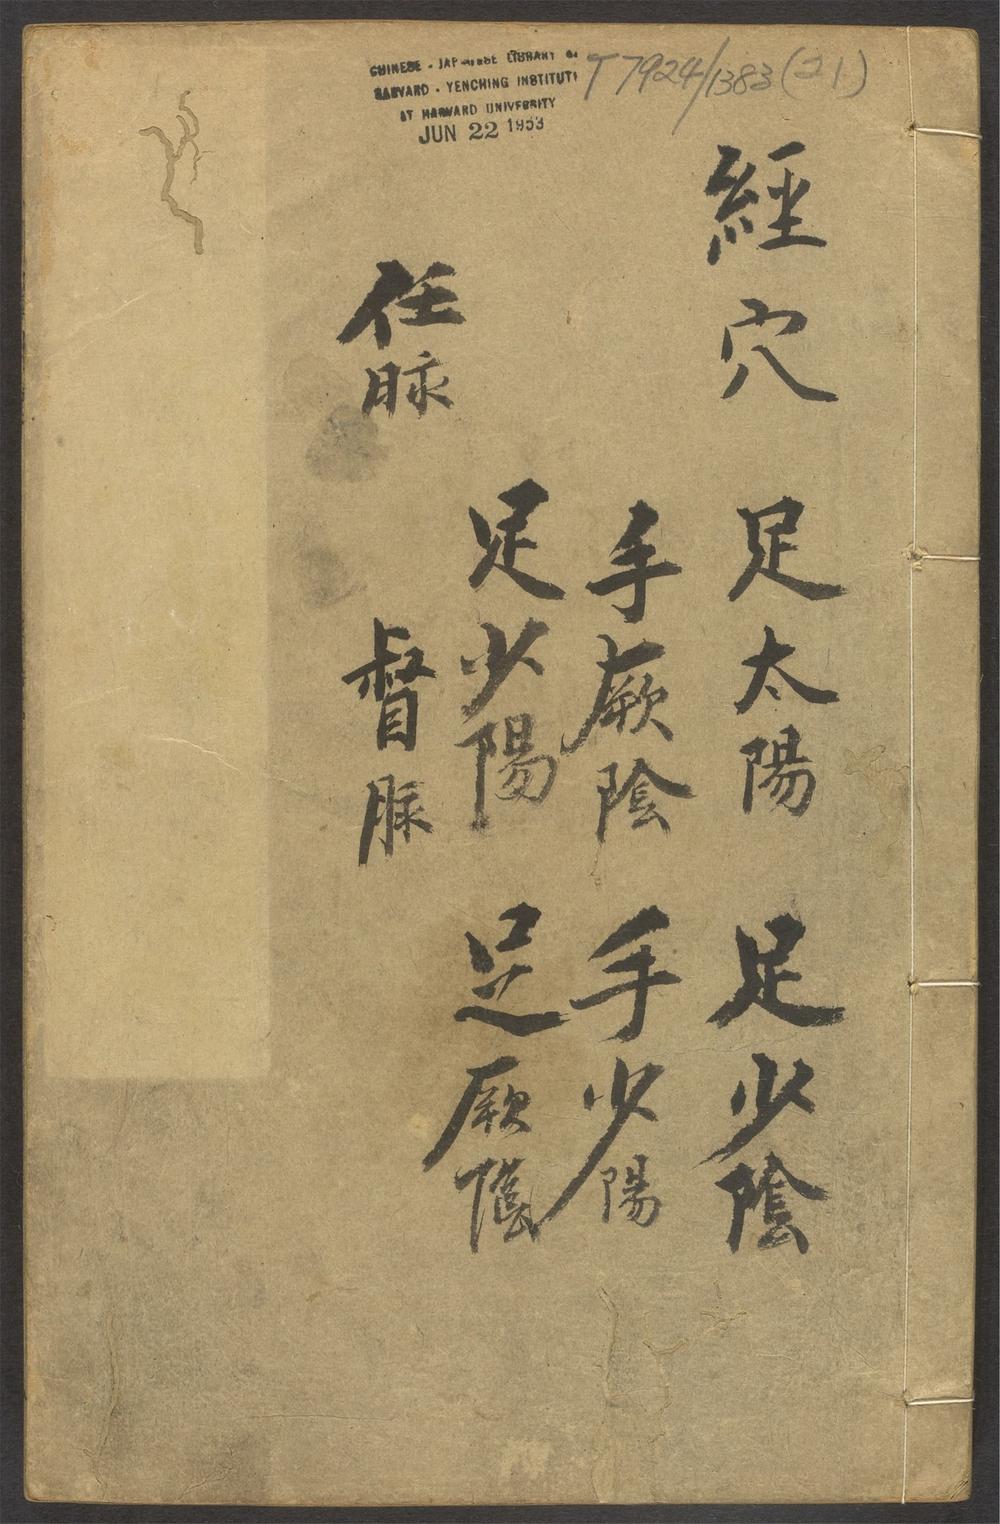 CHINESE - JAPANESE LIBRARY OF
HARVARD - YENCHING INSTITUTE
AT HARVARD UNIVERSITY
JUN 22 1953
T7924/1383(21)
經穴 足太陽 足少陰
手厥陰 手少陽
足少陽 足厥陰
任脉 督脉